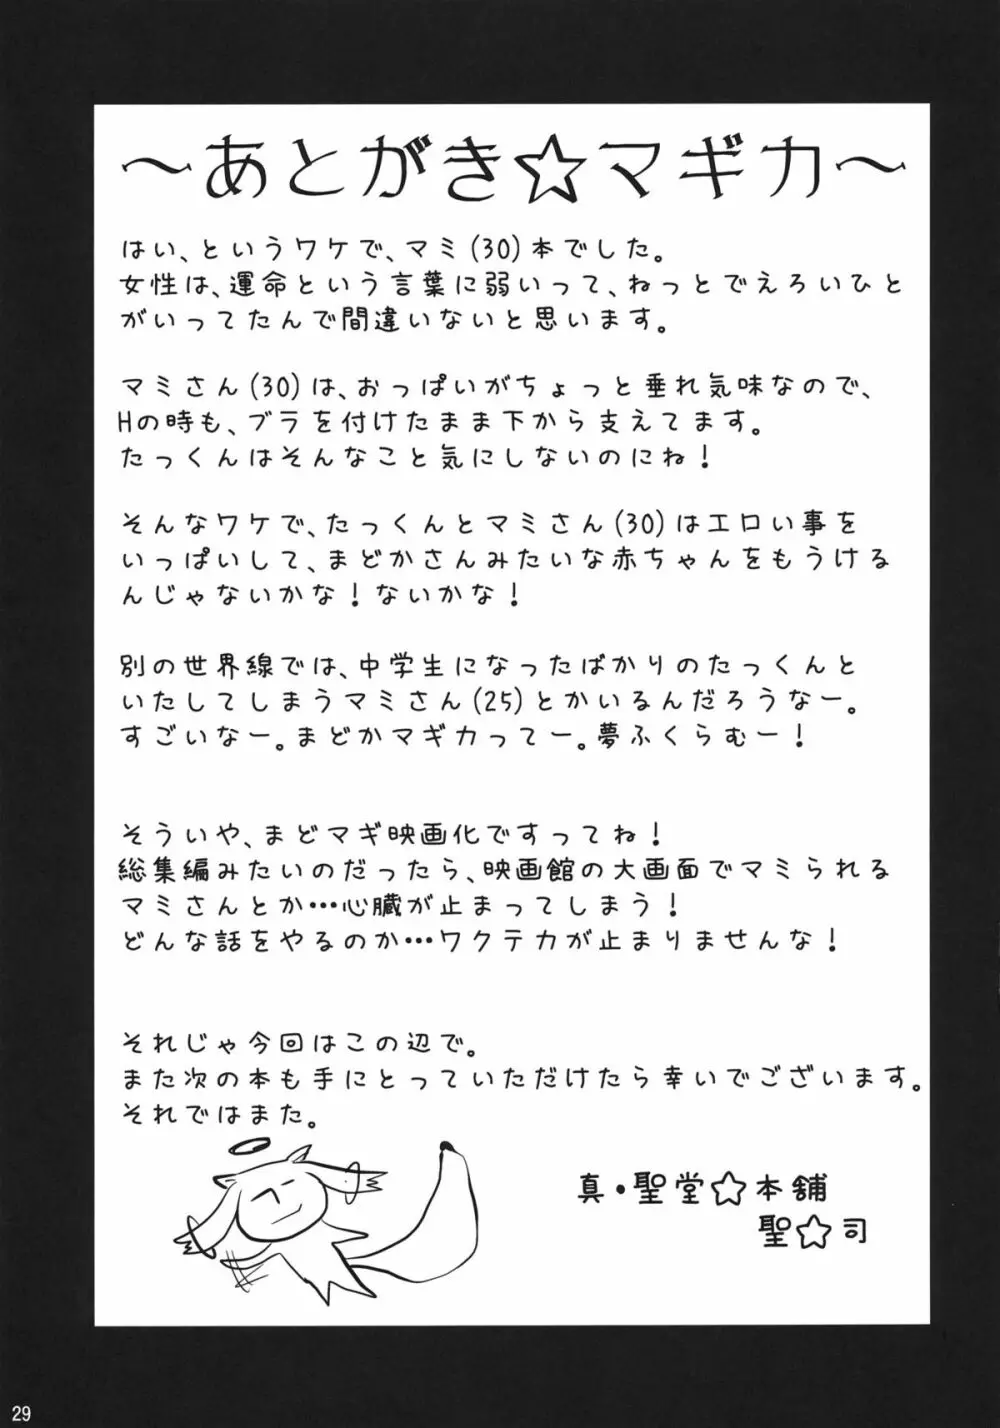 ～あとがき☆マギカ～
はい、というワケで、マミ(30)本でした。
女性は、運命という言葉に弱いって、ねっとでえろいひと
がいってたんで間違いないと思います。
マミさん(30)は、おっぱいがちょっと垂れ気味なので、
Hの時も、ブラを付けたまま下から支えてます。
たっくんはそんなこと気にしないのにね！
そんなワケで、たっくんとマミさん(30)はエロい事を
いっぱいして、まどかさんみたいな赤ちゃんをもうける
んじゃないかな！ないかな！
すごいなー。まどかマギカってー。夢ふくらむー！
そういや、まどマギ映画化ですってね！
総集編みたいのだったら、映画館の大画面でマミられる
マミさんとか…心臓が止まってしまう！
どんな話をやるのか…ワクテカが止まりませんな！
それじゃ今回はこの辺で。
また次の本も手にとっていただけたら幸いでございます。
それではまた。
真・聖堂☆本舗
聖☆司
29